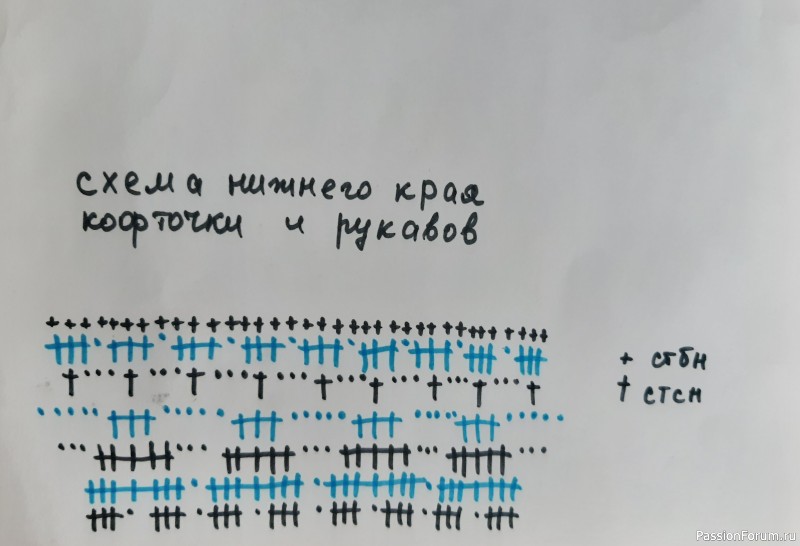 схема нижнего края
кофточки и рукавов
+ стбн
† стсн
PassionForum.ru